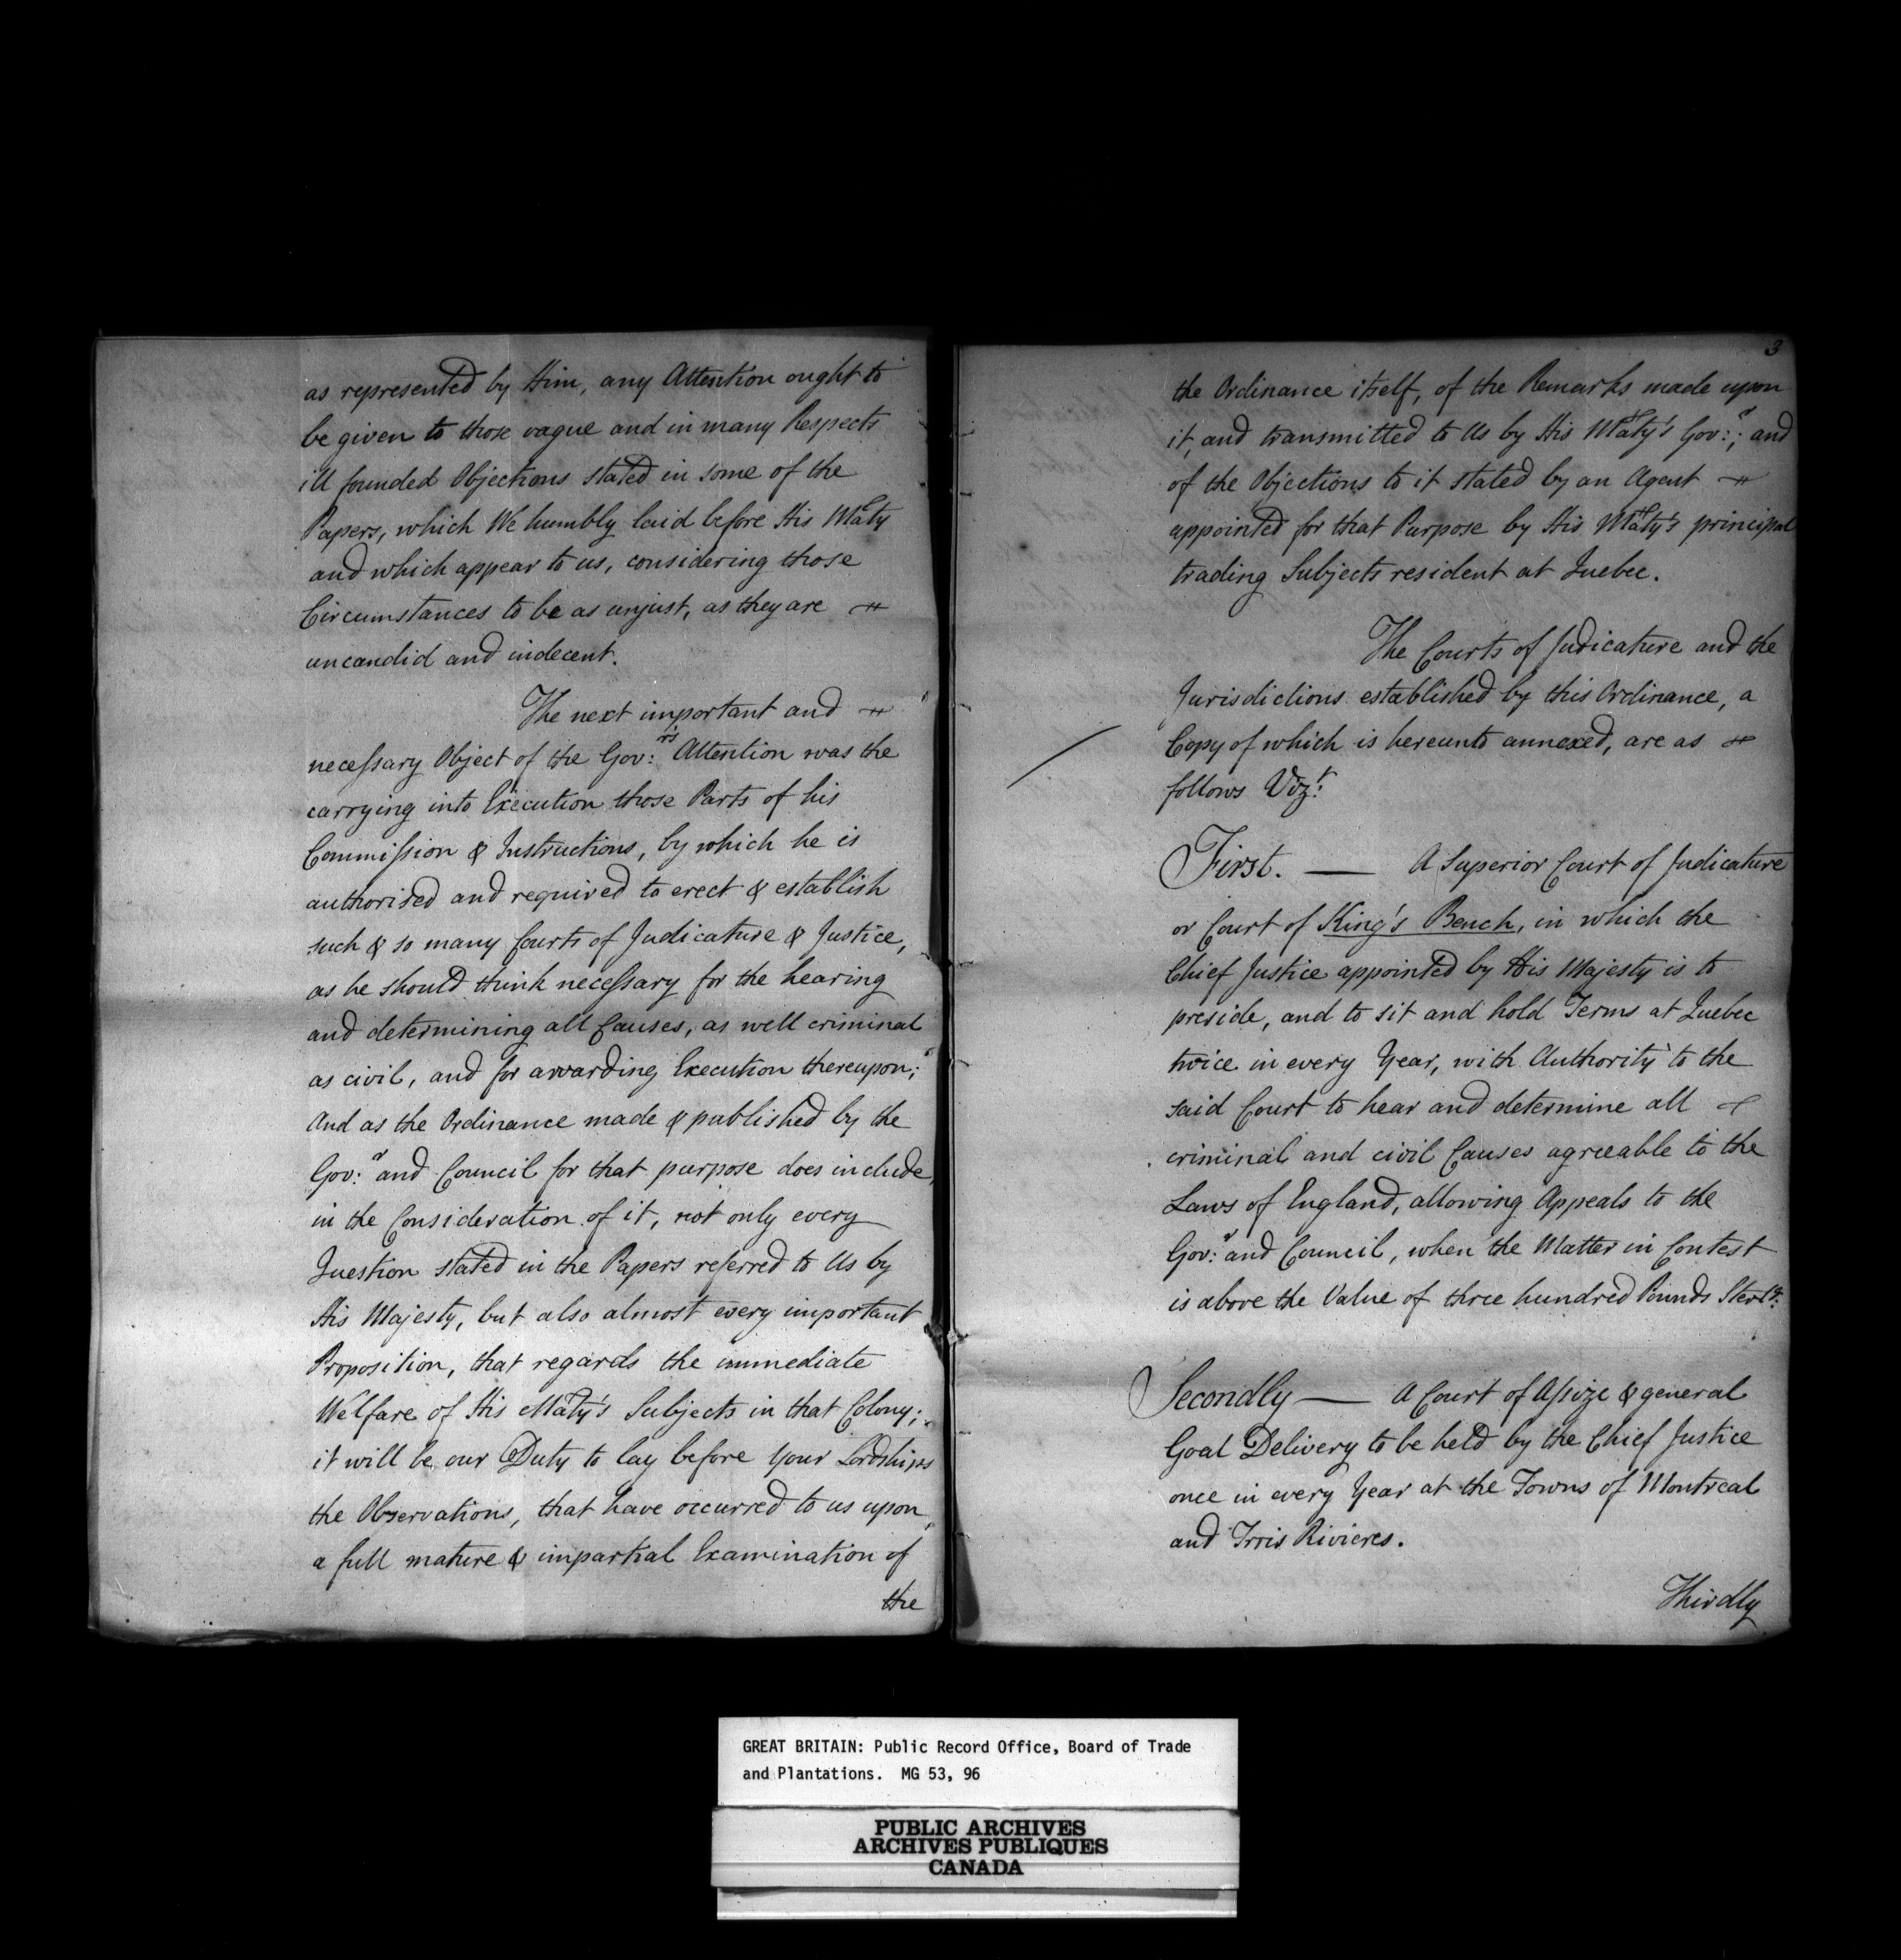 as represented by Him, any Attention ought to
be given to those vague and in many Respects
ill founded Objections stated in some of the
Papers, which We humbly laid before His Maty
and which appear to us, considering those
Circumstances to be as unjust, as they are
uncandid and indecent.
The next important and
necessary Object of the Gov:rs Attention was the
carrying into Execution those Parts of his
Commission & Instructions, by which he is
authorised and required to erect & establish
such & so many Courts of Judicature & Justice,
as he should think necessary for the hearing
and determining all Causes, as well criminal
as civil, and for awarding Execution thereupon;
And as the Ordinance made & published by the
Gov:r and Council for that purpose does include
in the Consideration of it, not only every
Question stated in the Papers referred to Us by
His Majesty, but also almost every important
Proposition, that regards the immediate
Welfare of His Maty's Subjects in that Colony;
it will be our Duty to lay before Your Lordships
the Observations, that have occurred to us upon
a full mature & impartial Examination of
the
3
the Ordinance itself, of the Remarks made upon
it, and transmitted to Us by His Maty's Gov:r; and
of the Objections to it stated by an Agent
appointed for that Purpose by His Maty's principal
trading Subjects resident at Quebec.
The Courts of Judicature and the
Jurisdictions established by this Ordinance, a
Copy of which is hereunto annexed, are as
follows Vizt:
First. — A Superior Court of Judicature
or Court of King's Bench, in which the
Chief Justice appointed by His Majesty is to
preside, and to sit and hold Terms at Quebec
twice in every Year, with Authority to the
said Court to hear and determine all
criminal and civil Causes agreeable to the
Laws of England, allowing Appeals to the
Gov:r and Council, when the Matter in Contest
is above the Value of three hundred Pounds Sterlg:
Secondly — A Court of Assize & general
Goal Delivery to be held by the Chief Justice
once in every Year at the Towns of Montreal
and Trois Rivieres.
Thirdly
GREAT BRITAIN: Public Record Office, Board of Trade
and Plantations. MG 53, 96
PUBLIC ARCHIVES
ARCHIVES PUBLIQUES
CANADA